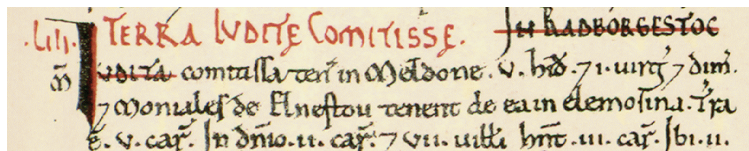 .LIII. TERRA IUDITĘ COMITISSĘ. IN RADBORGESTOC
ᵯ IUDITA comitissa teñ in Meldone. v. hid̄. ⁊ i. uirg̃ ⁊ dim̃.
⁊ Moniales de Elnestou tenent de ea in elemosina. T̃ra
ē. v. car̃. In dñio. ii. car̃. ⁊ vii. uiłłi hñt. iii. car̃. Ibi. ii.